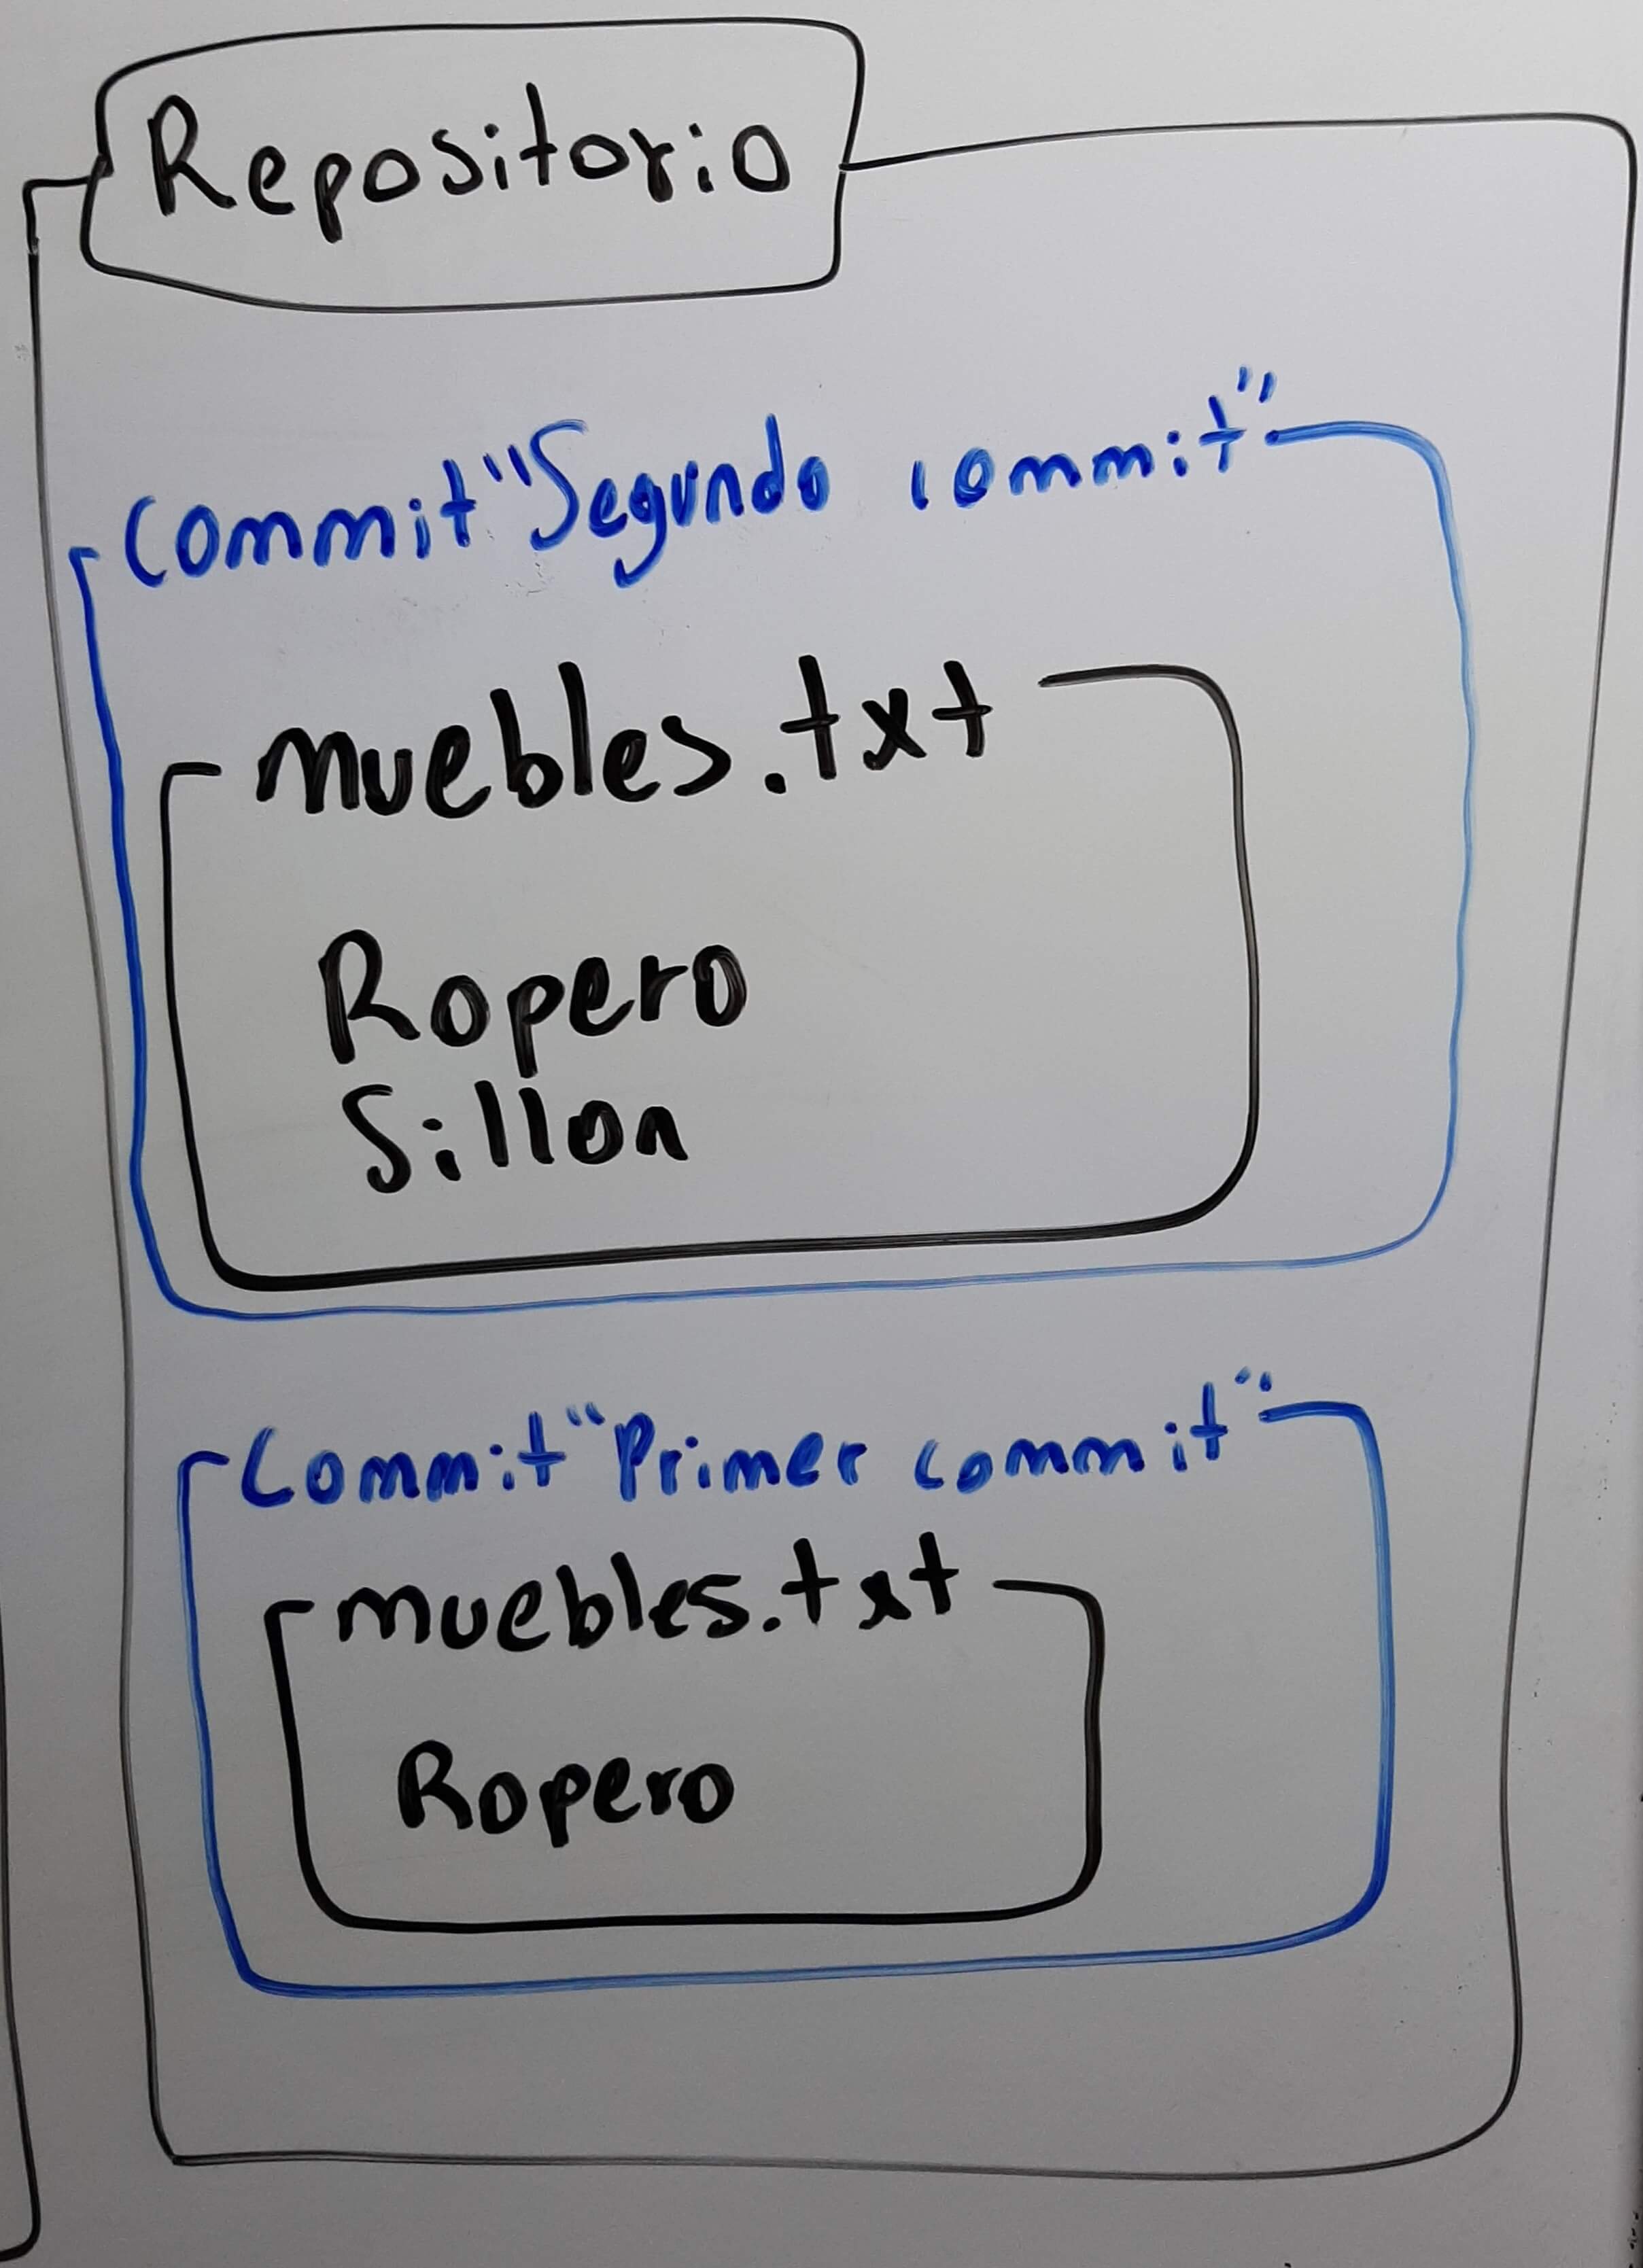 Repositorio
Commit "Segundo commit"
muebles.txt
Ropero
Sillon
Commit "Primer commit"
muebles.txt
Ropero